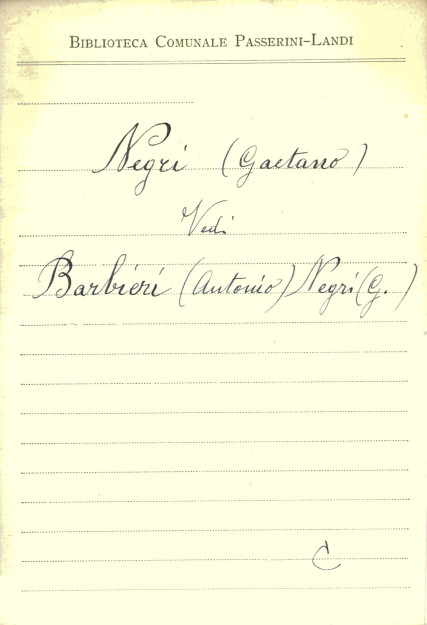 BIBLIOTECA COMUNALE PASSERINI-LANDI
Negri (Gaetano)
Vedi
Barbieri (Antonio) Negri (G.)
C